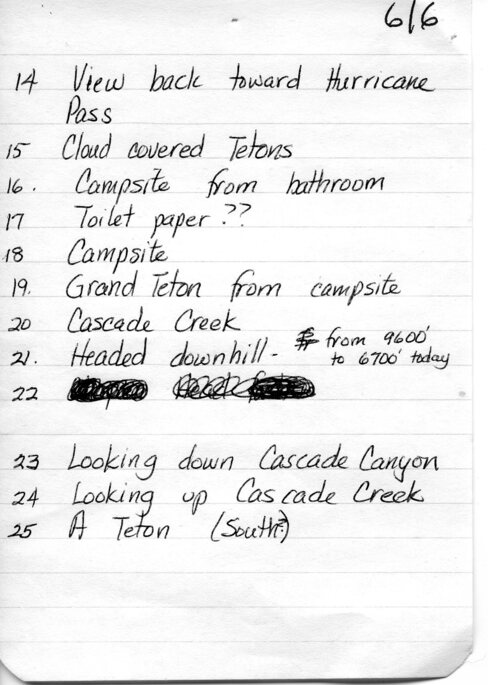 6/6
14 View back toward Hurricane
Pass
15 Cloud covered Tetons
16. Campsite from bathroom
17 Toilet paper ??
18 Campsite
19. Grand Teton from campsite
20 Cascade Creek
21. Headed downhill - from 9600'
to 6700' today
22
23 Looking down Cascade Canyon
24 Looking up Cascade Creek
25 A Teton (South?)